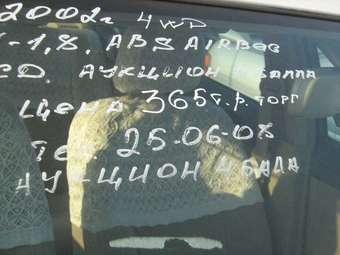 2002г 4WD
V-1,8. ABS AIRBAG
CD. АУКЦИОН 4 БАЛЛА
ЦЕНА 365т.р. торг
Тел. 25-06-08
АУКЦИОН 4 БАЛА